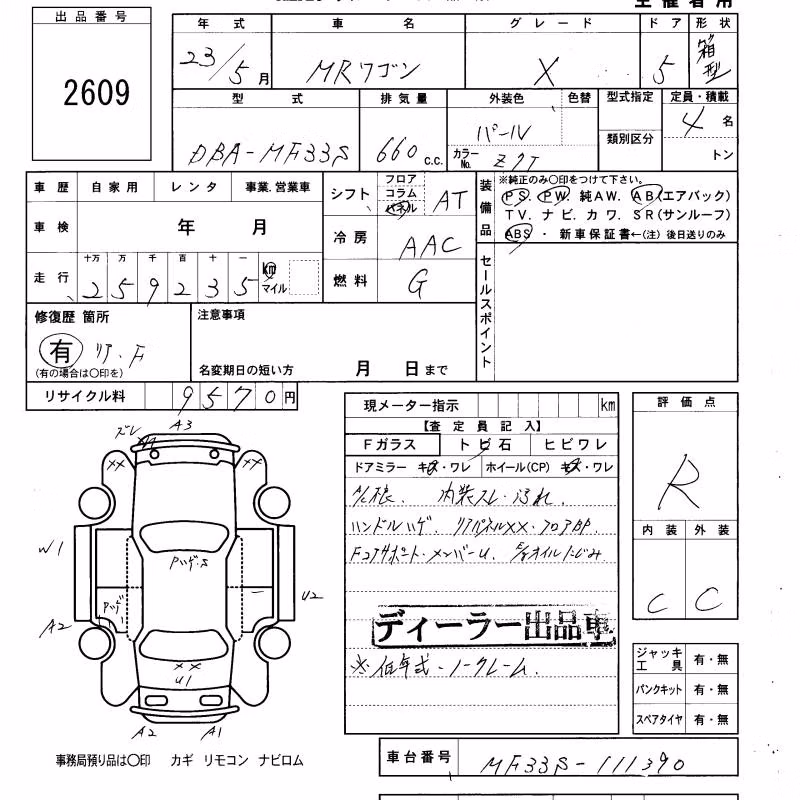 出品番号
2609
年式 車名 グレード ドア 形状
23/5月 MRワゴン X 5 箱型
型式 排気量 外装色 色替 型式指定 定員・積載
DBA-MF33S 660 c.c. パール 類別区分 4名
カラーNo. Z7T トン
車歴 自家用 レンタ 事業.営業車
シフト フロア コラム パネル AT
装備品 ※純正のみ〇印をつけて下さい。
PS. PW. 純AW. AB(エアバック)
TV. ナビ. カワ. SR(サンルーフ)
ABS ・ 新車保証書←(注) 後日送りのみ
車検 年 月
冷房 AAC
走行 十万 万 千 百 十 一 km マイル
259235
燃料 G
セールスポイント
修復歴 箇所
有 リア.F
(有の場合は〇印を)
注意事項
名変期日の短い方 月 日まで
リサイクル料 9570円
現メーター指示 km
【査定員記入】
Fガラス トビ石 ヒビワレ
ドアミラー キズ・ワレ ホイール(CP) キズ・ワレ
内装スレ・汚れ.
ハンドルハゲ. リアパネルXX・フロア部
Fコアサポート・メンバーU. オイルにじみ
ディーラー出品車
※低年式・ノークレーム.
評価点
R
内装 外装
C C
ジャッキ工具 有・無
パンクキット 有・無
スペアタイヤ 有・無
ズレ A3
XX XX
W1
Pハゲ.S
Pハゲ
U2
A2
XX
U1
A2 A1
事務局預り品は〇印 カギ リモコン ナビロム
車台番号 MF33S-111390